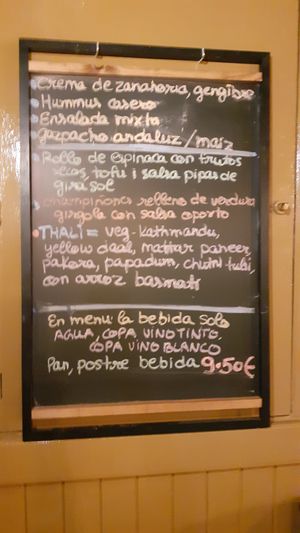 • Crema de zanahoria, gengibre
• Hummus casero
• Ensalada mixta
gazpacho andaluz / maiz
• Rollo de espinaca con frutos
secos, tofu i salsa pipas de
girasol
• Champiñones relleno de verdura
girgola con salsa oporto
• THALI = veg. kathmandu,
yellow daal, mattar paneer,
pakora, papadum,
con arroz basmati
En menu la bebida solo
AGUA, COPA VINO TINTO,
COPA VINO BLANCO
Pan, postre bebida 9.50€